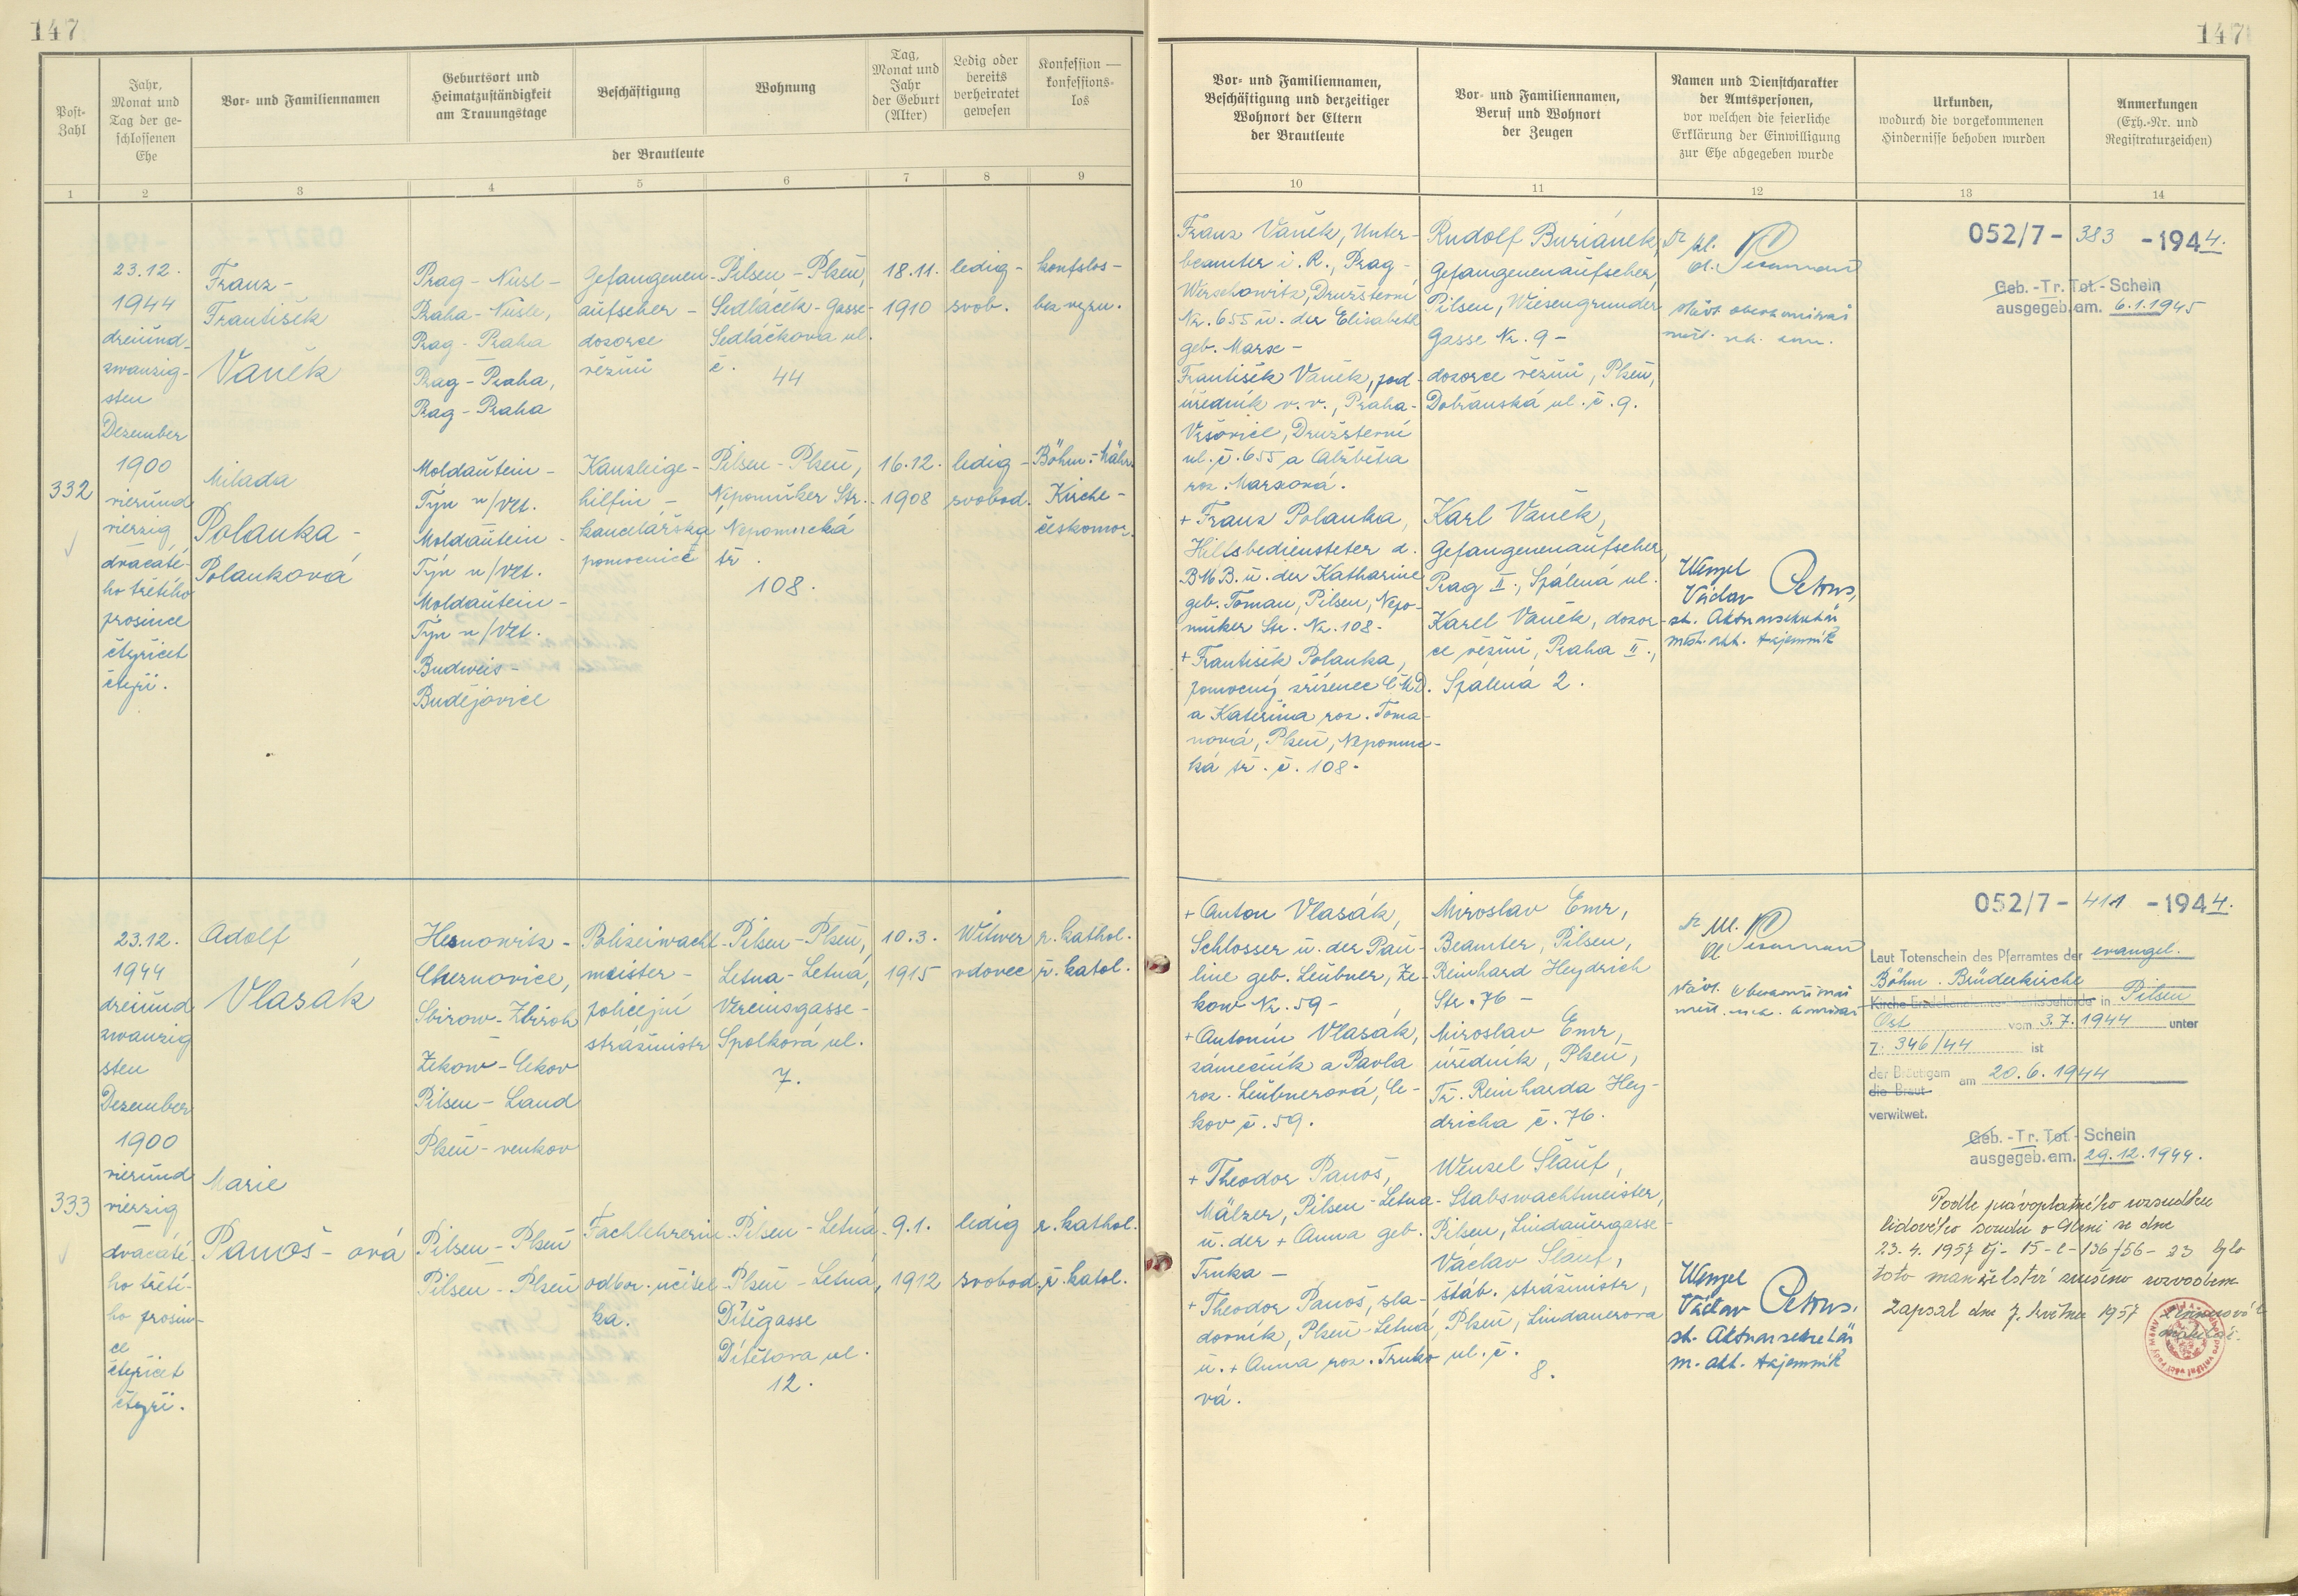 147
147
Post-
Zahl
Jahr,
Monat und
Tag der ge-
schlossenen
Ehe
Vor- und Familiennamen
Geburtsort und
Heimatzuständigkeit
am Trauungstage
Beschäftigung
Wohnung
Tag,
Monat und
Jahr
der Geburt
(Alter)
Ledig oder
bereits
verheiratet
gewesen
Konfession —
konfessions-
los
der Brautleute
1
2
3
4
5
6
7
8
9
Vor- und Familiennamen,
Beschäftigung und derzeitiger
Wohnort der Eltern
der Brautleute
Vor- und Familiennamen,
Beruf und Wohnort
der Zeugen
Namen und Dienstcharakter
der Amtspersonen,
vor welchen die feierliche
Erklärung der Einwilligung
zur Ehe abgegeben wurde
Urkunden,
wodurch die vorgekommenen
Hindernisse behoben wurden
Anmerkungen
(Exh.-Nr. und
Registraturzeichen)
10
11
12
13
14
332
23.12.
1944
dreiund-
zwanzig-
sten
Dezember
1900
vierund
vierzig
dvacáté-
ho třetího
prosince
čtyřicet
čtyři.
Franz -
František
Vaněk
Prag - Nusl -
Praha - Nusle,
Prag - Praha
Prag - Praha,
Prag - Praha
Gefangenen-
aufseher -
dozorce
vězňů
Pilsen - Plzeň,
Sedláček-Gasse-
Sedláčkova ul.
č.
44
18.11.
1910
ledig -
svob.
konfslos -
bez vyzn.
Milada
Polanka -
Polanková
Moldautein -
Týn n/Vlt.
Moldautein -
Týn n/Vlt.
Moldautein -
Týn n/Vlt.
Budweis -
Budějovice
Kanzleige-
hilfin -
kancelářská
pomocnice
Pilsen - Plzeň,
Nepomuker Str. -
Nepomucká
tř.
108.
16.12.
1908
ledig -
svobod.
Böhm.-Mähr.
Kirche -
českomor.
Franz Vaněk, Unter-
beamter i. R., Prag-
Werschowitz, Družstevní
Nr. 655 u. der Elisabeth
geb. Marse -
František Vaněk, pod-
úředník v.v., Praha-
Vršovice, Družstevní
ul. č. 655 a Alžběta
roz. Marsová.
+ Franz Polanka,
Hilfsbediensteter d.
BMB. u. der Katharine
geb. Toman, Pilsen, Nepo-
muker Str. Nr. 108 -
+ František Polanka,
pomocný zřízenec ČMD.
a Kateřina roz. Toma-
nová, Plzeň, Nepomuc-
ká tř. č. 108.
Rudolf Buriánek,
Gefangenenaufseher,
Pilsen, Wiesengrunder
Gasse Nr. 9 -
dozorce vězňů, Plzeň,
Dobřanská ul. č. 9.
Karl Vaněk,
Gefangenenaufseher,
Prag II., Spálená ul.
Karel Vaněk, dozor-
ce vězňů, Praha II.,
Spálená 2.
Wenzel
Václav Petrus,
st. Aktuarsekretär
měst. akt. tajemník
052/7 - 383 - 1944.
Geb. - Tr. Tot. - Schein
ausgegeb. am. 6.1.1945
333
23.12.
1944
dreiund
zwanzig
sten
Dezember
1900
vierund
vierzig
dvacáté-
ho třetí-
ho prosin-
ce
čtyřicet
čtyři.
Adolf
Vlasák
Chernovice,
Sbirow - Zbiroh
Zekow - Cekov
Pilsen - Land
Plzeň - venkov
Polizeiwacht-
meister -
policejní
strážmistr
Pilsen - Plzeň,
Letna - Letná,
Vereinsgasse -
Spolková ul.
7.
10.3.
1915
Witwer
vdovec
r. kathol.
ř. katol.
Marie
Panoš - ová
Pilsen - Plzeň
Pilsen - Plzeň
Fachlehrerin -
odbor. učitel-
ka.
Pilsen - Letná -
Plzeň - Letná,
Dítěgasse
Dítětova ul.
12.
9.1.
1912
ledig
svobod.
r. kathol.
ř. katol.
+ Anton Vlasák,
Schlosser u. der Pau-
line geb. Leubner, Ze-
kow Nr. 59 -
+ Antonín Vlasák,
zámečník a Pavla
roz. Leubnerová, Ce-
kov č. 59.
+ Theodor Panoš,
Mälzer, Pilsen - Letna -
u. der + Anna geb.
Trnka -
+ Theodor Panoš, sla-
dovník, Plzeň - Letná
u. + Anna roz. Trnko-
vá.
Miroslav Emr,
Beamter, Pilsen,
Reinhard Heydrich
Str. 76 -
Miroslav Emr,
úředník, Plzeň,
Tř. Reinharda Hey-
dricha č. 76.
Wenzel Šlauf,
Stabswachtmeister,
Pilsen, Lindauergasse -
Václav Šlauf,
štáb. strážmistr,
Plzeň, Lindauerova
ul. č.
8.
Wenzel
Václav Petrus.
st. Aktuarsekretär
m. akt. tajemník
052/7 - 411 - 1944.
Laut Totenschein des Pfarramtes der evangel.
Böhm. Brüderkirche
in Pilsen
Ort vom 3.7.1944 unter
Z. 346/44 ist
der Bräutigam am 20.6.1944
die Braut
verwitwet.
Geb. - Tr. Tot. - Schein
ausgegeb. am. 29.12.1944.
Podle právoplatného rozsudku
lidového soudu v Plzni ze dne
23.4.1957 čj- 15-C-136/56-23 bylo
toto manželství zrušeno rozvodem
Zapsal dne 7. května 1957